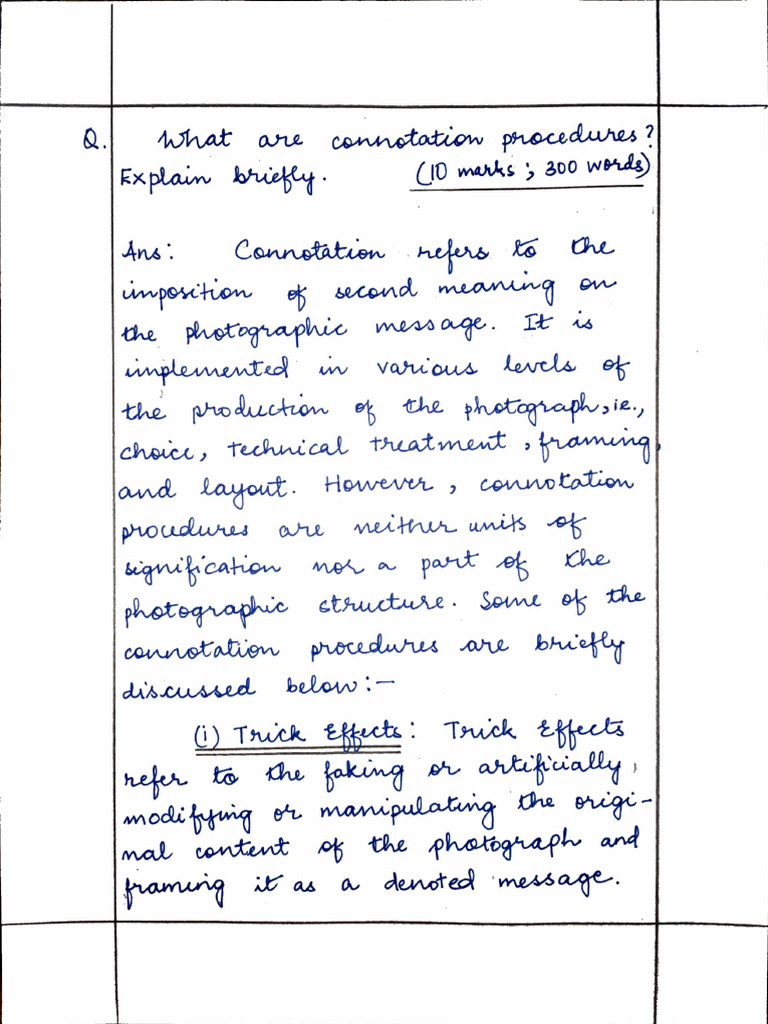 Q. What are connotation procedures?
Explain briefly. (10 marks; 300 words)
Ans: Connotation refers to the
imposition of second meaning on
the photographic message. It is
implemented in various levels of
the production of the photograph, ie.,
choice, technical treatment, framing,
and layout. However, connotation
procedures are neither units of
signification nor a part of the
photographic structure. Some of the
connotation procedures are briefly
discussed below:-
(i) Trick Effects: Trick Effects
refer to the faking or artificially,
modifying or manipulating the origi-
nal content of the photograph and
framing it as a denoted message.